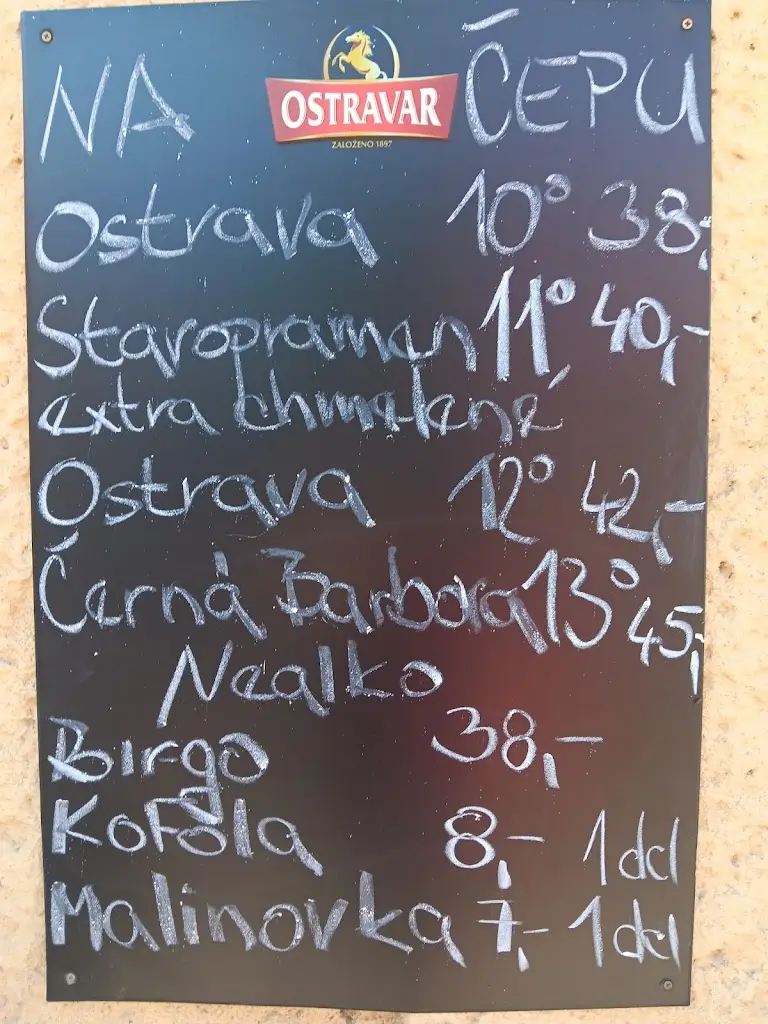 NA OSTRAVAR ČEPU
ZALOŽENO 1897
Ostrava 10° 38,
Staropramen 11° 40,-
extra chmelené
Ostrava 12° 42,-
Černá Barbora 13° 45,
Nealko
Birgo 38,-
Kofola 8,- 1dcl
Malinovka 7,- 1dcl